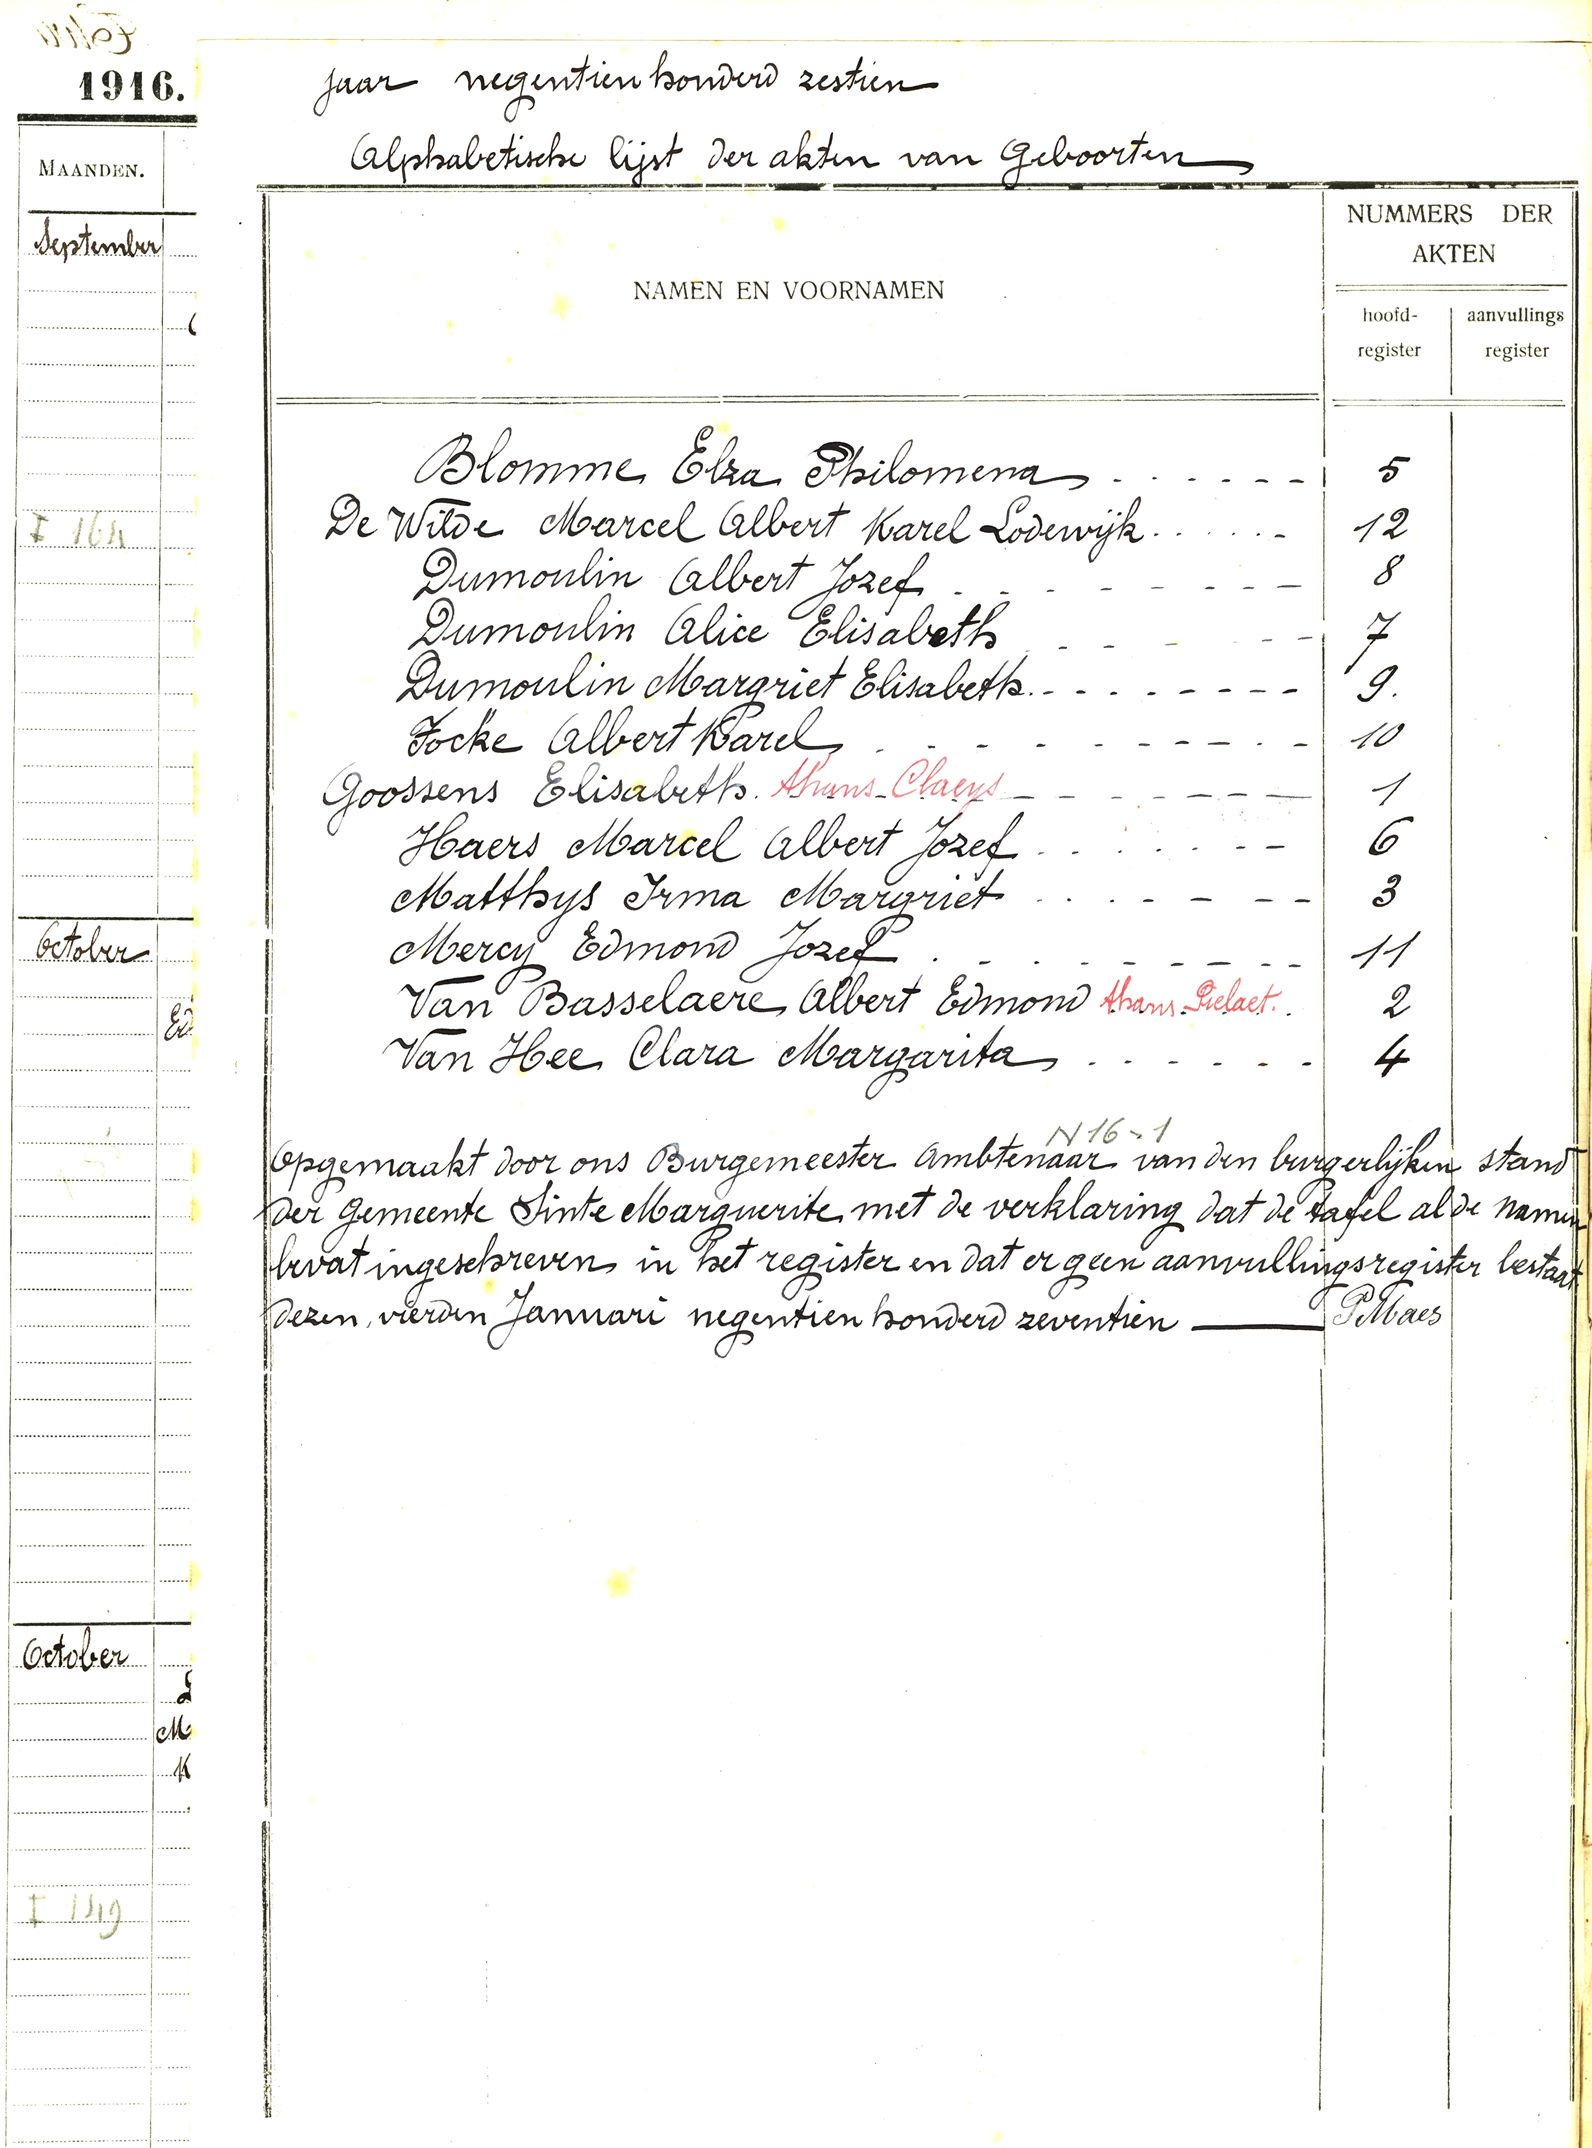 1916.
MAANDEN.
September
I 164
October
October
I 149
jaar negentien honderd zestien
Alphabetische lijst der akten van Geboorten
NAMEN EN VOORNAMEN
NUMMERS DER
AKTEN
hoofd-
register
aanvullings
register
Blomme Elza Philomena 5
De Wilde Marcel Albert Karel Lodewijk 12
Dumoulin Albert Jozef 8
Dumoulin Alice Elisabeth 7
Dumoulin Margriet Elisabeth 9.
Focke Albert Karel 10
Goossens Elisabeth. thans Claeys 1
Haers Marcel Albert Jozef 6
Matthys Irma Margriet 3
Mercy Edmond Jozef 11
Van Basselaere Albert Edmond thans Pielaet. 2
Van Hee Clara Margarita 4
N 16-1
Opgemaakt door ons Burgemeester Ambtenaar van den burgerlijken stand
der Gemeente Sinte Marguerite met de verklaring dat de tafel al de namen
bevat ingeschreven in het register en dat er geen aanvullingsregister bestaat
dezen vierden Januari negentien honderd zeventien PMaes